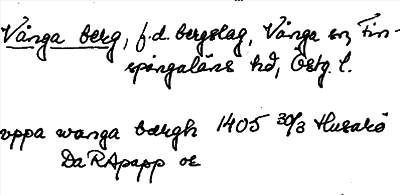 Vånga berg, f.d. bergslag, Vånga sn, Fin-
spångaläns hd, Östg. l.
vppa wanga bærgh 1405 30/3 Husarö
DaRApapp or